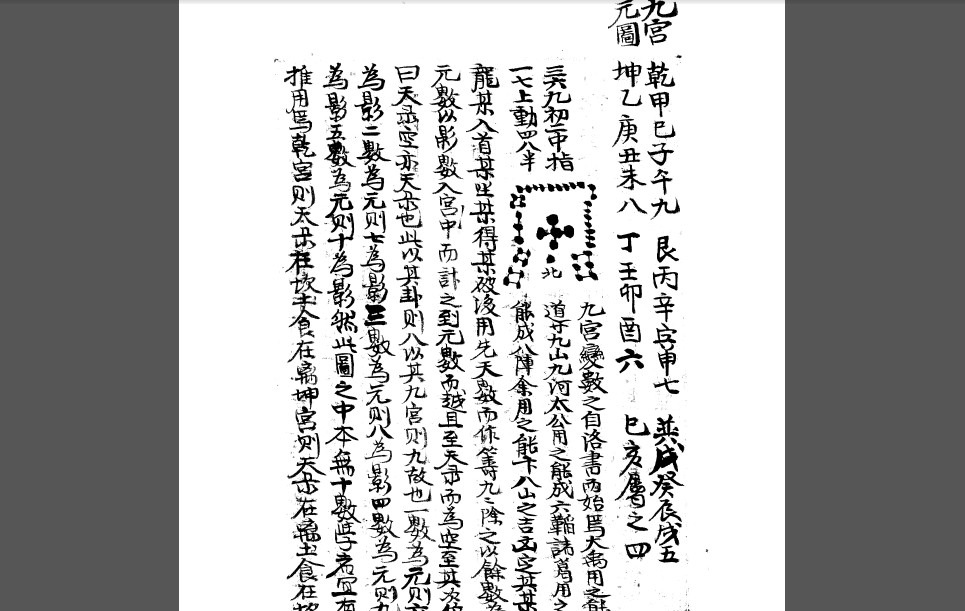 九宮
元圖
乾甲巳子午九 艮丙辛寅申七 戊癸辰戌五
坤乙庚丑未八 丁壬卯酉六 巳亥屬之四
九宮變數之自洛書而始焉大禹用之能
三六九初一中指
道于九山九河太公用之能成六鞱諸葛用之
一七上動四八半
能成八陣余用之能卞八山之吉凶定其某
北
龍某入首某坐某得某破後用先天數而作等九九除之以餘數為
元數以影數入宮中而計之到元數而越且至天彔而為空至其次
曰天彔空亦天彔也此以其卦則八以其九宮則九故也一數為元則六
為影二數為元則七為影三數為元則八為影四數為元則九
為影五數為元則十為影然此圖之中本無十數學者宜有
推用焉乾宮則天彔在坎土食在离坤宮則天彔在离土食在坎